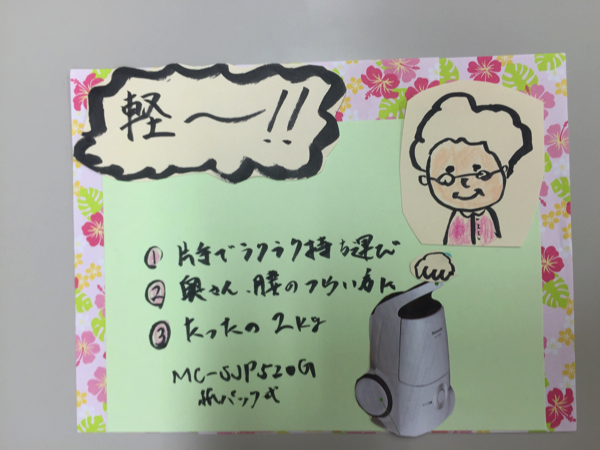 軽〜!!
① 片手でラクラク持ち運び
② 奥さん、腰のつらい方に
③ たったの2kg
MC-SJP520G
紙パック式